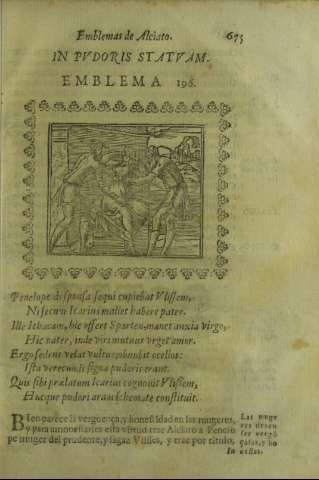 Emblemas de Alciato. 675
IN PVDORIS STATVAM.
EMBLEMA 196.
Penelope desponsa sequi cupiebat Vlissem,
Ni secum Icarius mallet habere pater.
Ille Ithacam, hic offert Sparten, manet anxia virgo,
Hic pater, inde viri mutuus vrget amor.
Ergo sedens velat vultus, obnubit ocellos:
Ista verecundi signa pudoris erant.
Queis sibi prælatum Icarius cognouit Vlissem,
Hucque pudori aram schemate constituit.
Bien parece la verguença, y honestidad en las mugeres,
y para amonestarles esta virtud trae Alciato a Penelo
pe muger del prudente, y sagaz Vlisses, y trae por titulo,
Las muge
res deuen
ser vergõ
çosas, y ho
nestas.
In